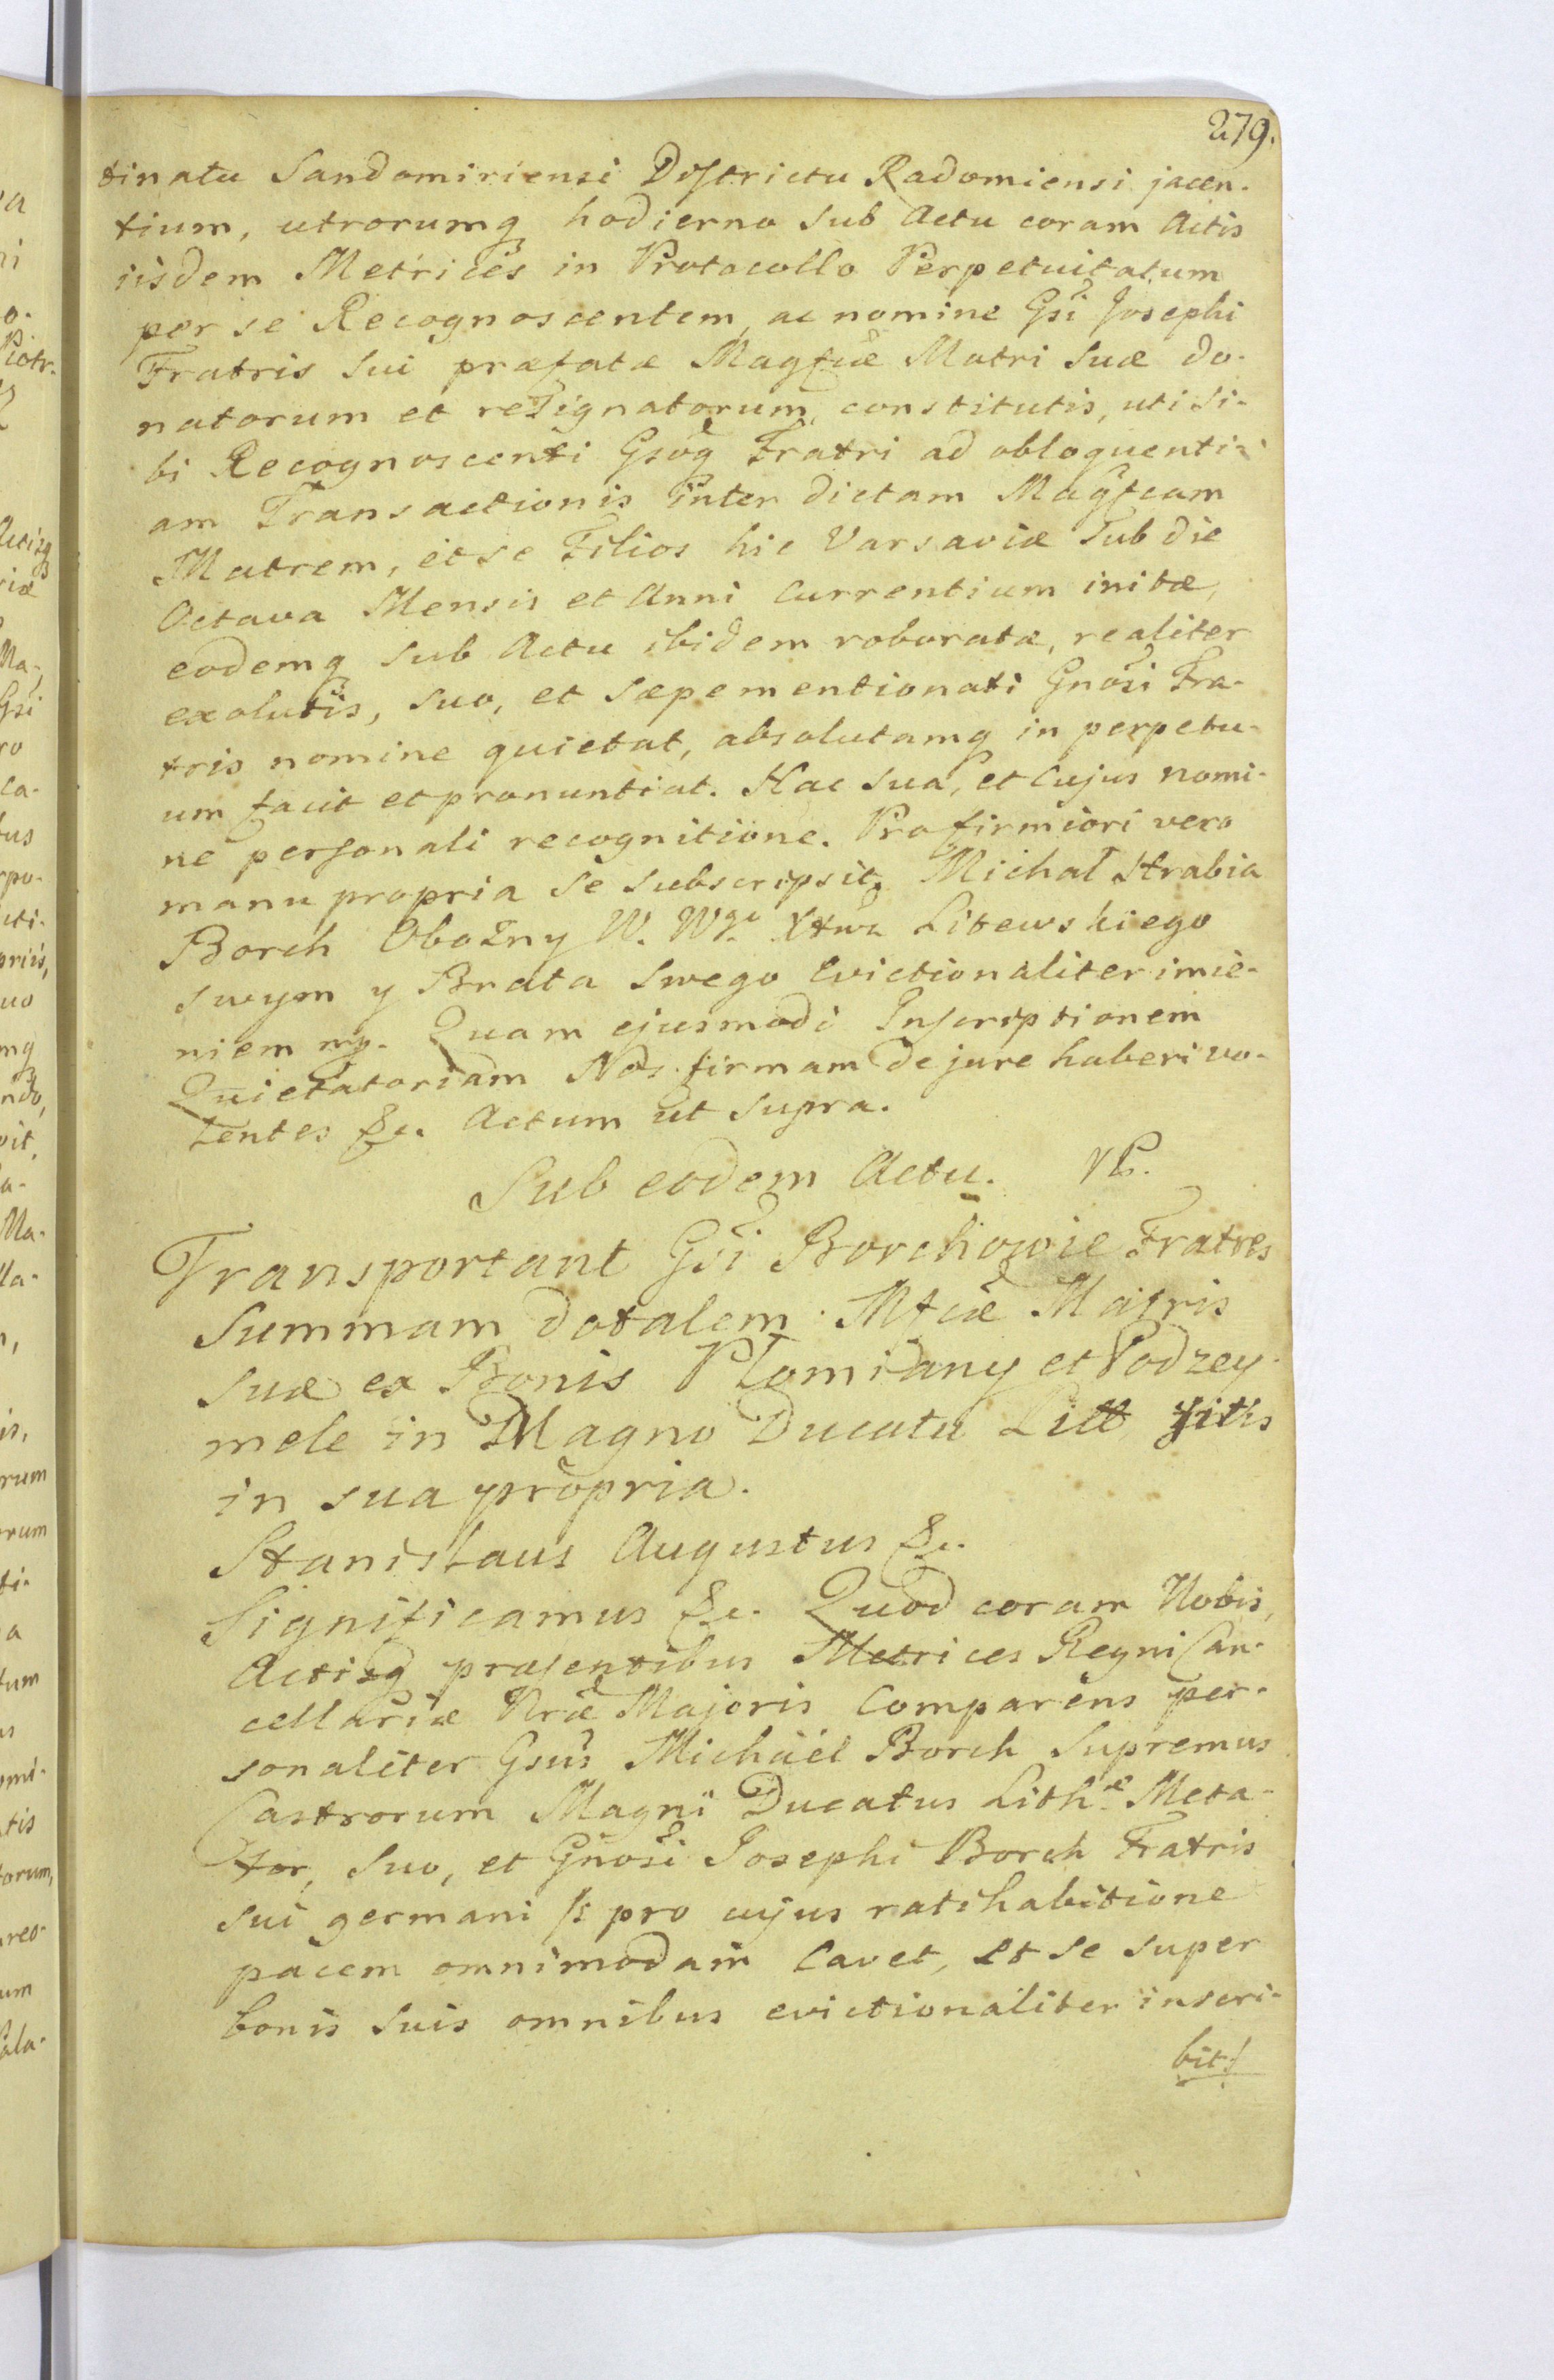 279.
tinatu Sandomiriensi Districtu Radomiensi jacen-
tium, utrorumq hodierno sub Actu coram Actis
iisdem Metrices in Protocollo Perpetuitatum
per se Recognoscentem, ac nomine Gsi Josephi
Fratris sui præfatæ Magfcæ Matri suæ do-
natorum et resignatorum, constitutis, uti si-
bi Recognoscenti Gsoq Fratri ad obloquenti-
am Transactionis inter dictam Magfcam
Matrem, et se Filios hic Varsaviæ sub die
Octava Mensis et Anni Currentium initæ,
eodemq sub Actu ibidem roboratæ, realiter
exolutis, suo, et sæpementionati Gnosi Fra-
tris nomine quietat, absolutamq in perpetu-
um facit et pronuntiat. Hac sua, et Cujus nomi-
ne personali recognitione. Pro firmiori vero
manu propria se subscripsit. Michał Hrabia
Borch Oboźny W. Wgo Xtwa Litewskiego
swym y Brata swego Evictionaliter imie-
niem mp. Quam ejusmodi Inscriptionem
Quietatoriam Nos firmam de jure haberi vo-
lentes &c. Actum ut supra.
Sub eodem Actu.
Transportant Gsi Borchowie Fratres
Summam dotalem Mfcæ Matris
suæ ex Bonis Płomiany et Podzey-
mele in Magno Ducatu Litt sitis
in sua propria.
Stanislaus Augustus &c.
Significamus &c. Quod coram Nobis,
Actisq præsentibus Metrices Regni Can-
cellariæ Nræ Majoris Comparens per-
sonaliter Gsus Michäel Borch Supremus
Castrorum Magni Ducatus Lithæ Meta-
tor, suo, et Gnosi Josephi Borch Fratris
sui germani /: pro cujus ratihabitione
pacem omnimodam Cavet, et se super
bonis suis omnibus evictionaliter inscri-
bit:/